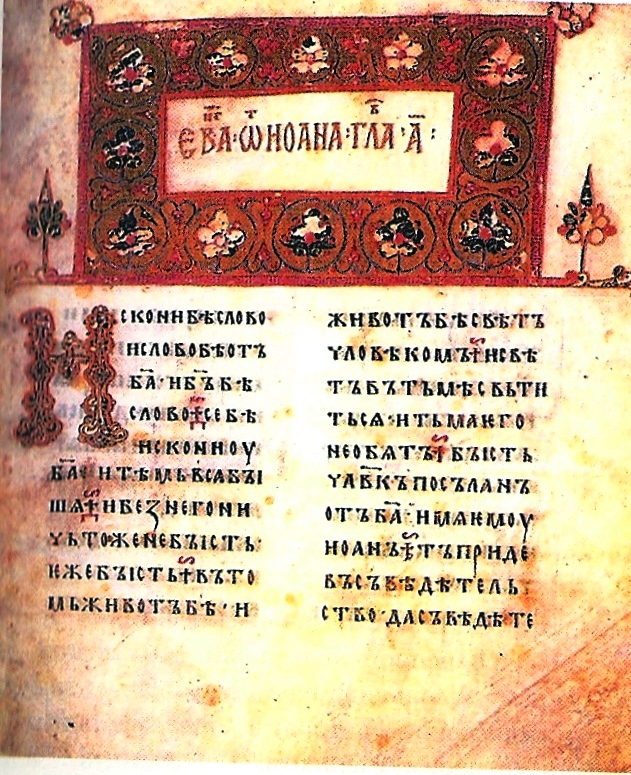 ЕВА·Ѿ ИОАНА·ГЛА·А҃:
ИСКОНИБѢСЛОВО
ИСЛОВОБѢОТЪ
Б҃А·ИБ҃ЪБѢ
СЛОВО·СЕБѢ
ИСКОНИОУ
Б҃А·ИТѢМЬВСАБЪІ
ШѦ·ИБЕЗНЕГОНИ
ЧЬТОЖЕНЕБЪІСТЬ·
ѤЖЕБЪІСТЬ·ВЪТО
МЬЖИВОТЪБѢ·И
ЖИВОТЪБѢСВѢТЪ
ЧЛОВѢКОМЪ·ИСВѢ
ТЪВЪТЬМѢСВЬТИ
ТЬСѦ·ИТЬМАѤГО
НЕОБѦТЪ·БЪІСТЬ
ЧЛ҃ВКЪПОСЪЛАНЪ
ОТЪБ҃А·ИМѦѤМОУ
ИОАНЪ·ТЪПРИДЕ
ВЪСЪВѢДѢТЕЛЬ
СТВО·ДАСЪВѢДѢТЕ